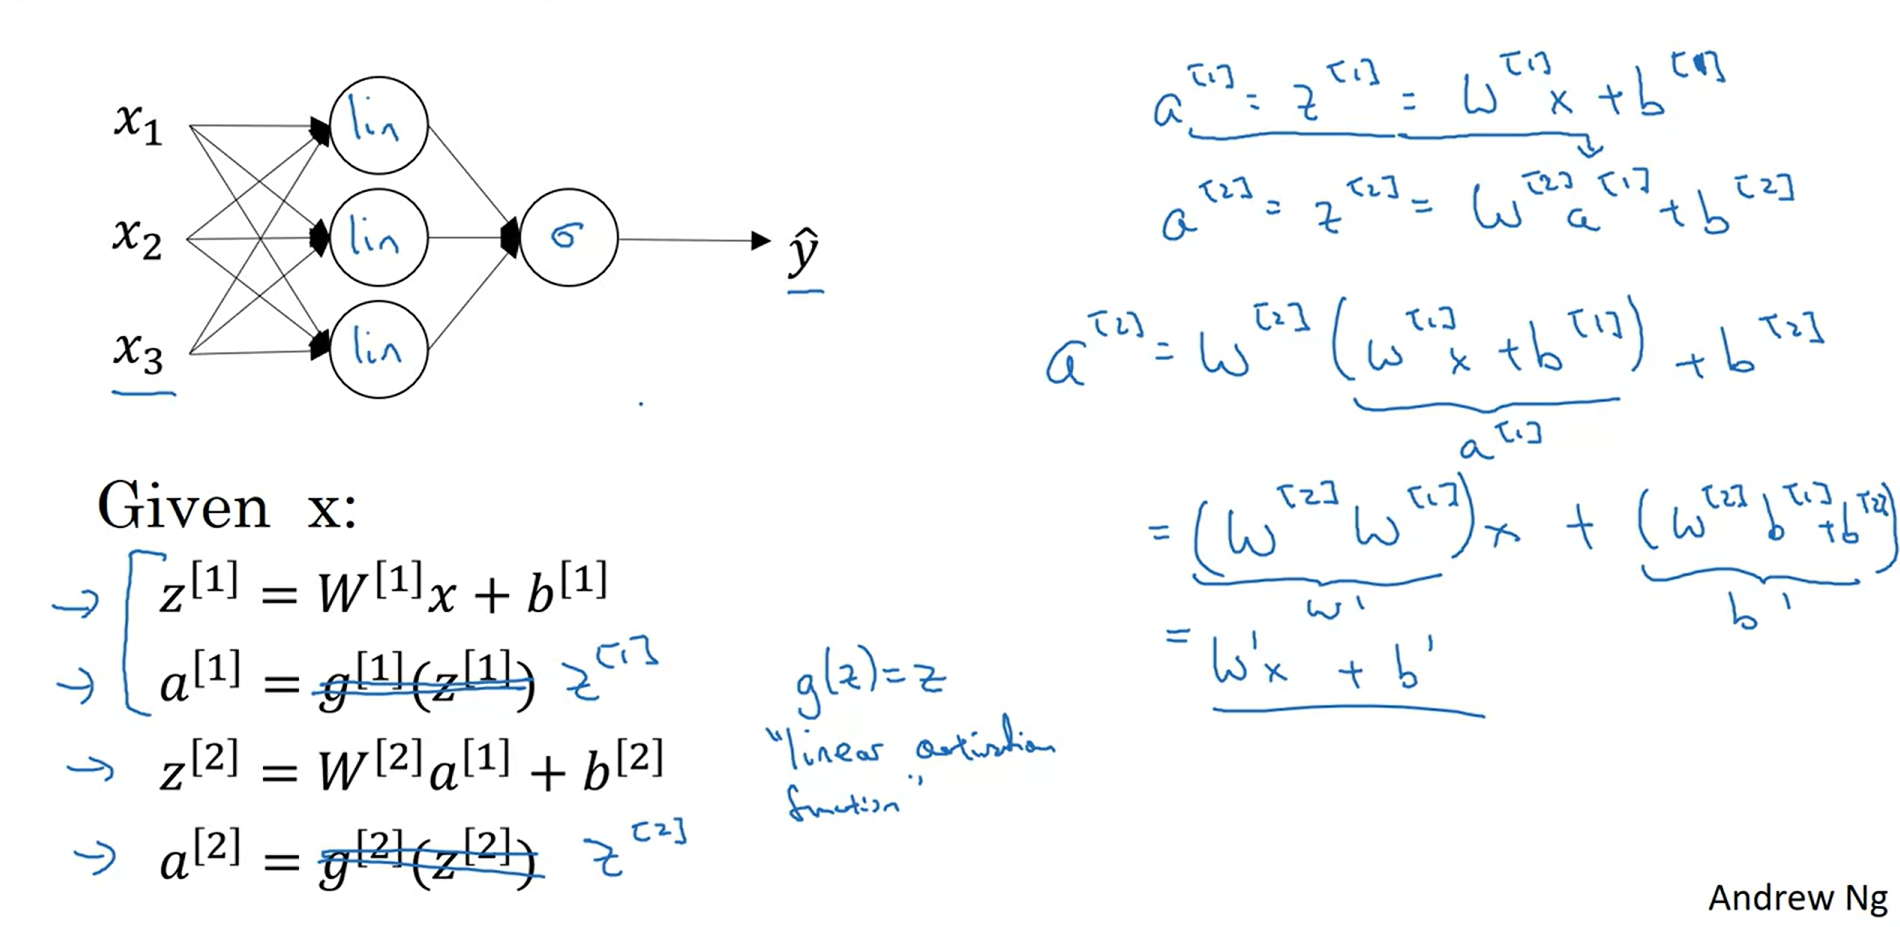 x₁ lin
x₂ lin σ ŷ
x₃ lin
Given x:
→ z^[1] = W^[1]x + b^[1]
→ a^[1] = g^[1](z^[1]) z^[1]
→ z^[2] = W^[2]a^[1] + b^[2]
→ a^[2] = g^[2](z^[2]) z^[2]
g(z) = z
"linear activation
function"
a^[1] = z^[1] = W^[1]x + b^[1]
a^[2] = z^[2] = W^[2]a^[1] + b^[2]
a^[2] = W^[2](W^[1]x + b^[1]) + b^[2]
a^[1]
= (W^[2]W^[1])x + (W^[2]b^[1] + b^[2])
W' b'
= W'x + b'
Andrew Ng